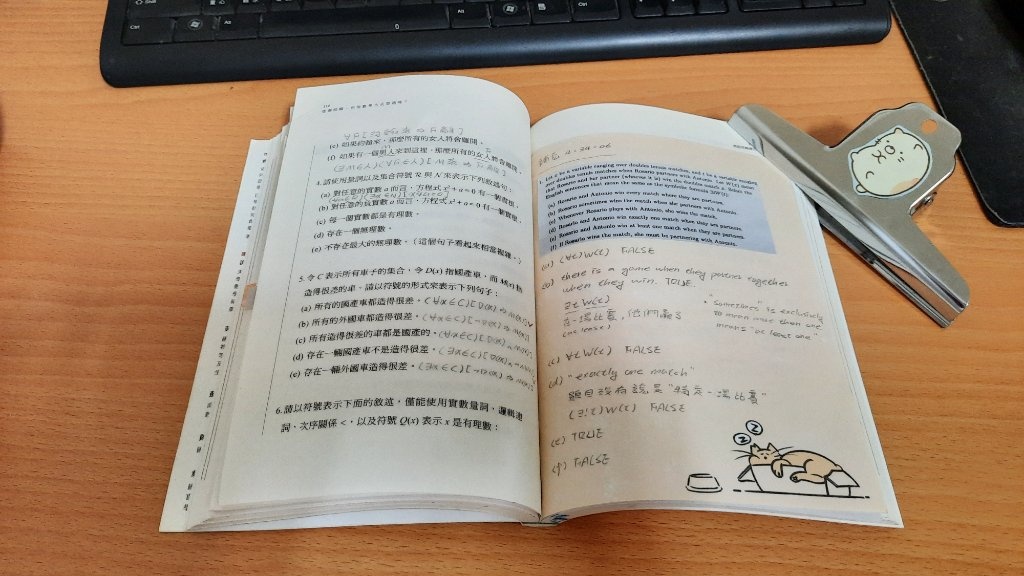 (e) 如果約翰來，那麼所有的女人將會離開。
(f) 如果有一個男人來到這裡，那麼所有的女人將會離開。
4. 請使用量詞以及集合符號 ℜ 與 N 來表示下列敘述句：
(a) 對任意的實數 a 而言，方程式 x² + a = 0 有一個實根。
(b) 對任意的負實數 a 而言，方程式 x² + a = 0 有一個實根。
(c) 每一個實數都是有理數。
(d) 存在一個無理數。
(e) 不存在最大的無理數。（這個句子看起來相當複雜。）
5. 令 C 表示所有車子的集合，令 D(x) 指國產車，而 M(x) 指
造得很差的車。請以符號的形式來表示下列句子：
(a) 所有的國產車都造得很差。(∀x∈C)[D(x)
(b) 所有的外國車都造得很差。(∀x∈C)[¬D(x)
(c) 所有造得很差的車都是國產的。(∀x∈C)[M(x)
(d) 存在一輛國產車不是造得很差。(∃x∈C)[D(x)
(e) 存在一輛外國車造得很差。(∃x∈C)[¬D(x)
6. 請以符號表示下面的敘述，僅能使用實數量詞、邏輯連
詞、次序關係 <，以及符號 Q(x) 表示 x 是有理數：
1. Let x be a variable ranging over doubles tennis matches, and t be a variable ranging
over doubles tennis matches when Rosario partners with Antonio. Let W(x) mean
that Rosario and her partner (whoever it is) win the doubles match x. Select the
English sentences that mean the same as the symbolic formula ∃tW(t).
(a) Rosario and Antonio win every match where they are partners.
(b) Rosario sometimes wins the match when she partners with Antonio.
(c) Whenever Rosario plays with Antonio, she wins the match.
(d) Rosario and Antonio win exactly one match when they are partners.
(e) Rosario and Antonio win at least one match when they are partners.
(f) If Rosario wins the match, she must be partnering with Antonio.
(a) (∀t)W(t) FALSE
(b) there is a game when they partner together
when they win. TRUE.
∃t W(t)
在一場比賽，他們贏了
(at least)
"sometimes" is exclusively
to mean more than one
means "at least one"
(c) ∀t W(t) FALSE
(d) "exactly one match"
題目沒有說是"特定一場比賽"
(∃!t)W(t) FALSE
(e) TRUE
(f) FALSE
Z
Z